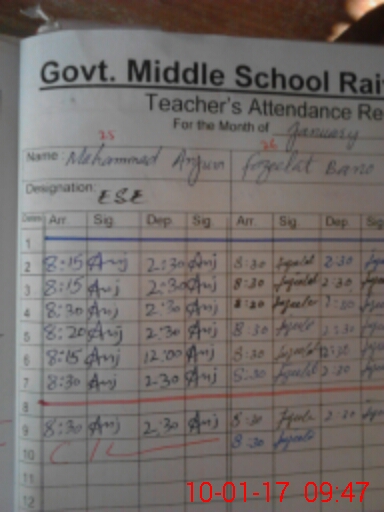 Govt. Middle School Rai
Teacher's Attendance Re
For the Month of January
25 26
Name: Mohammad Anjum Fozeelat Bano
Designation: ESE
Dates Arr. Sig. Dep. Sig. Arr. Sig. Dep. Sig
1
2 8:15 Anj 2:30 Anj 8:30 2:30
3 8:15 Anj 2:30 Anj 8:30 2:30
4 8:30 Anj 2:30 Anj 8:20
5 8:20 Anj 2:30 Anj 8:30 2:30
6 8:15 Anj 12:00 Anj 8:30 12:30
7 8:30 Anj 2:30 Anj 8:30 2:30
8
9 8:30 Anj 2:30 Anj 8:30 2:30
10 C/L 8:30
11
12
10-01-17 09:47